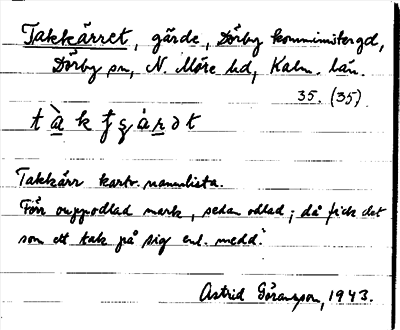 Takkärret, gärde, Dörby komministergd,
Dörby sn, N. Möre hd, Kalm. län.
35. (35)
Takkärr kartv. namnlista.
Förr ouppodlad mark, sedan odlad; då fick det
som ett tak på sig enl. medd.
Astrid Göransson, 1943.